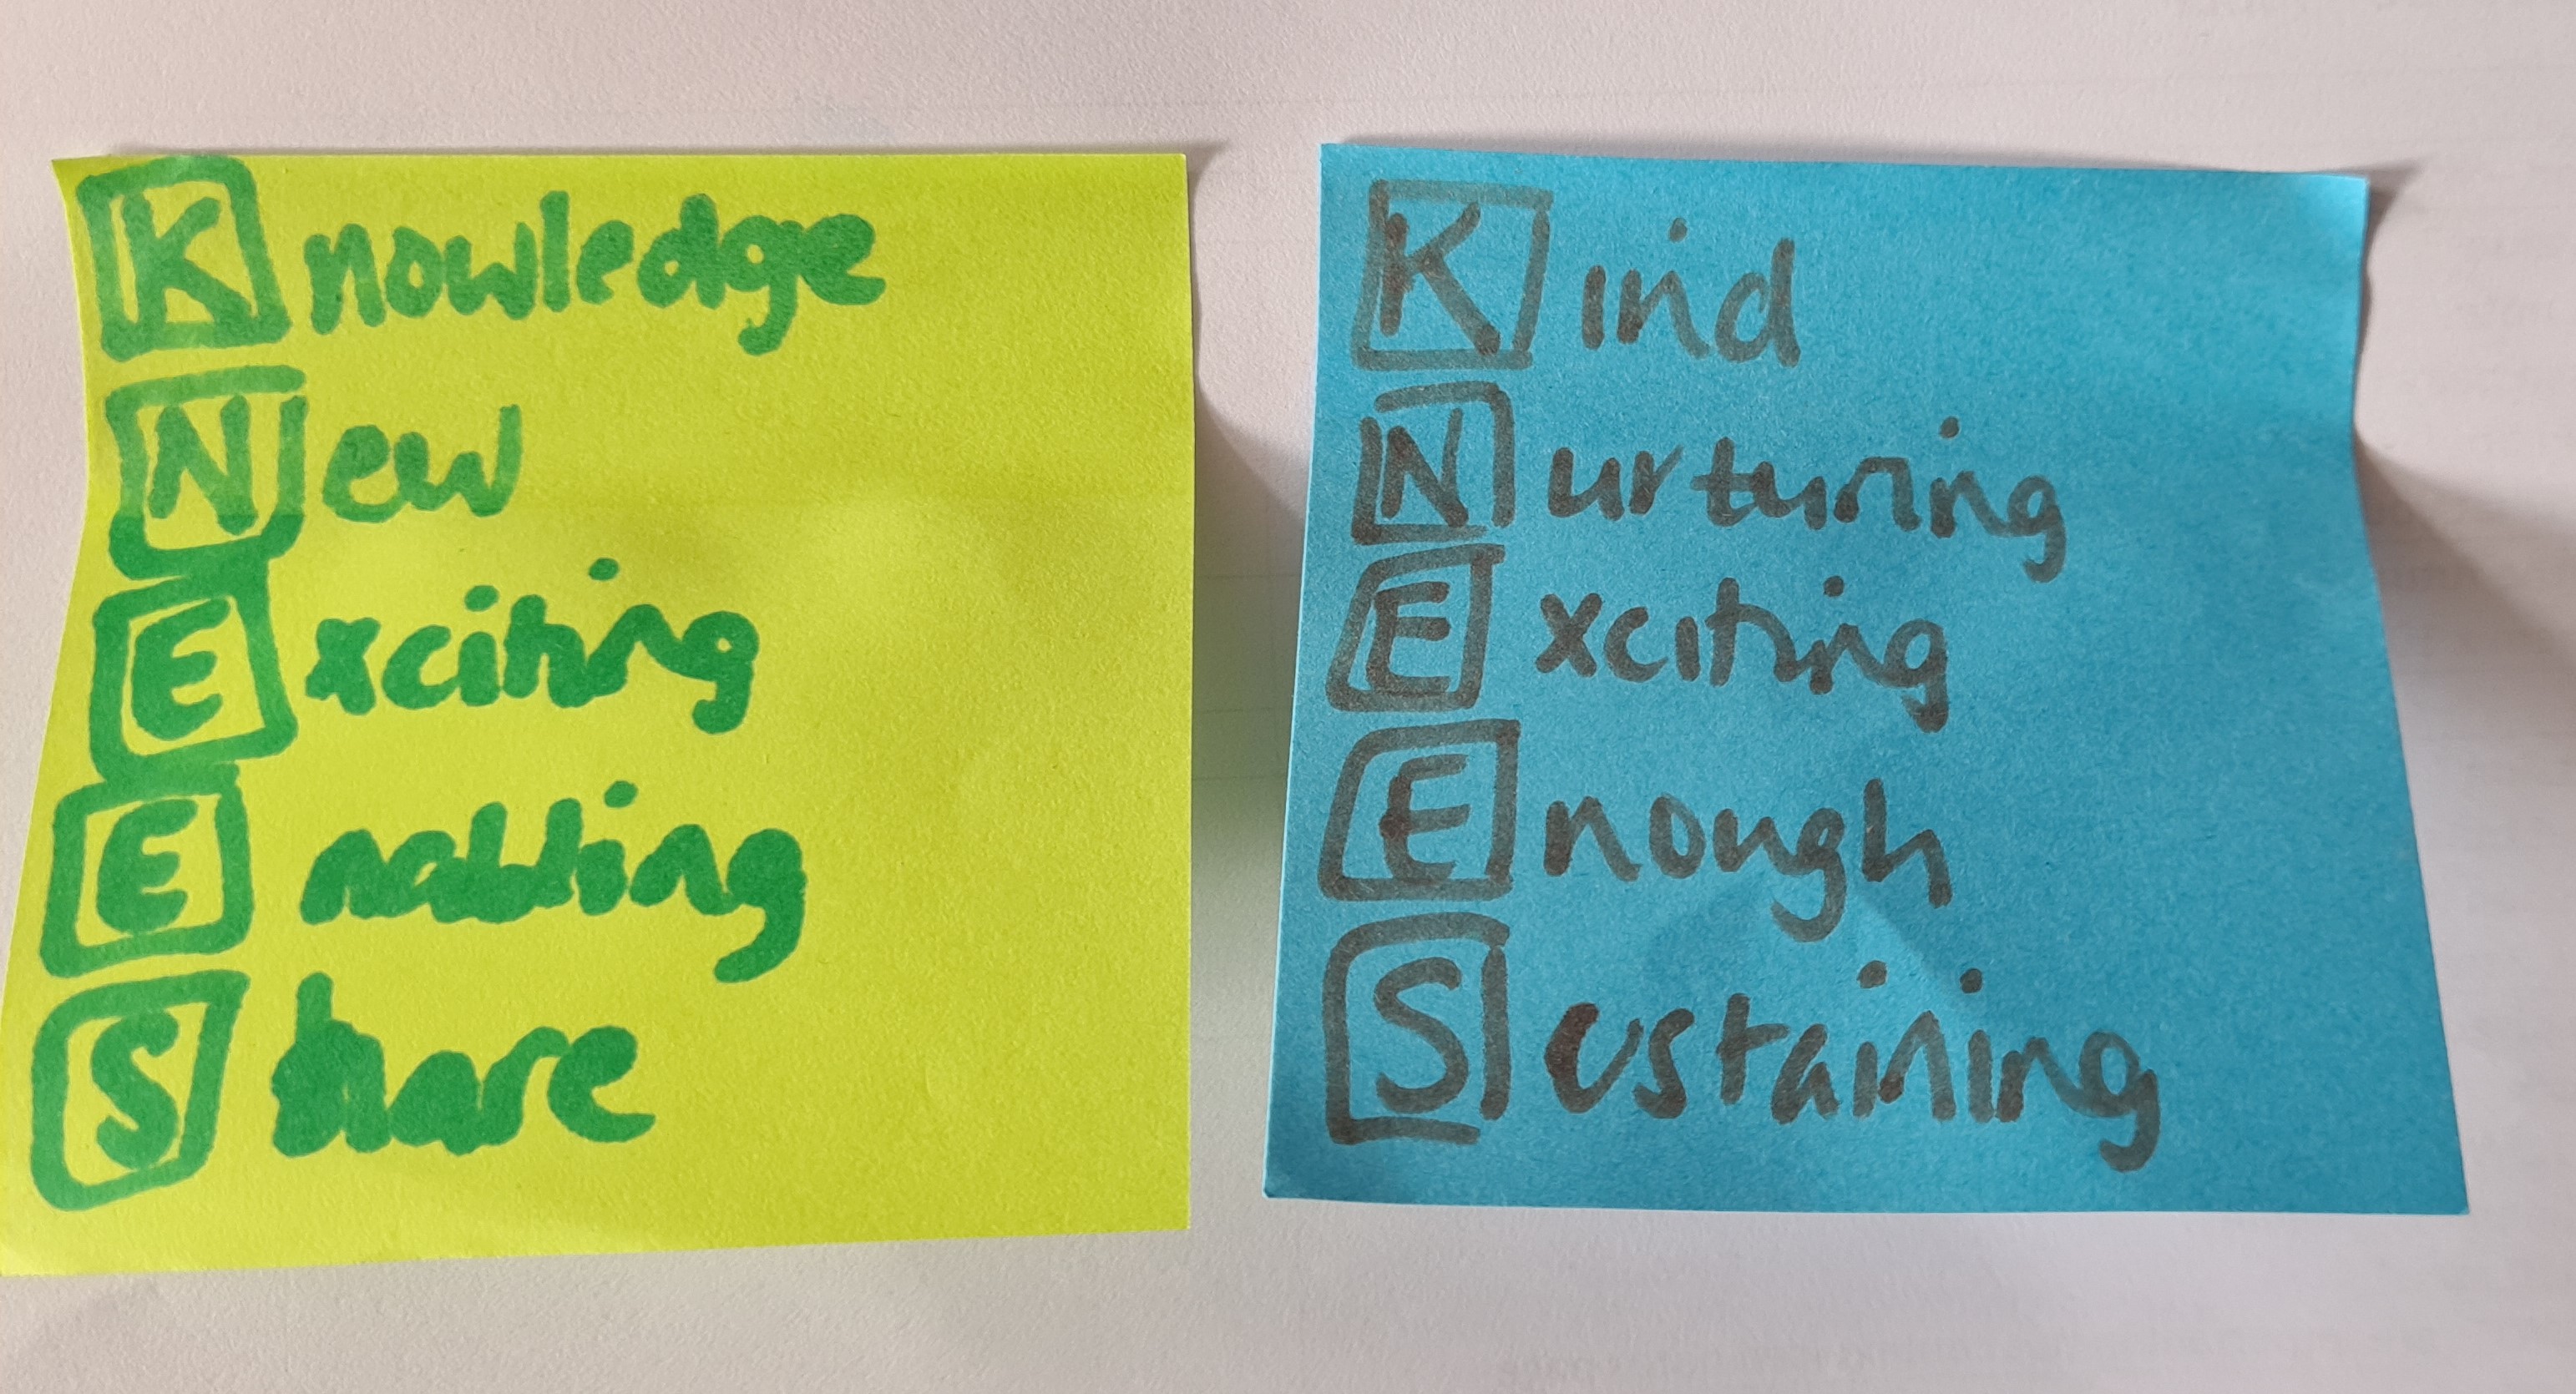 Knowledge
New
Exciting
Enabling
Share
Kind
Nurturing
Exciting
Enough
Sustaining